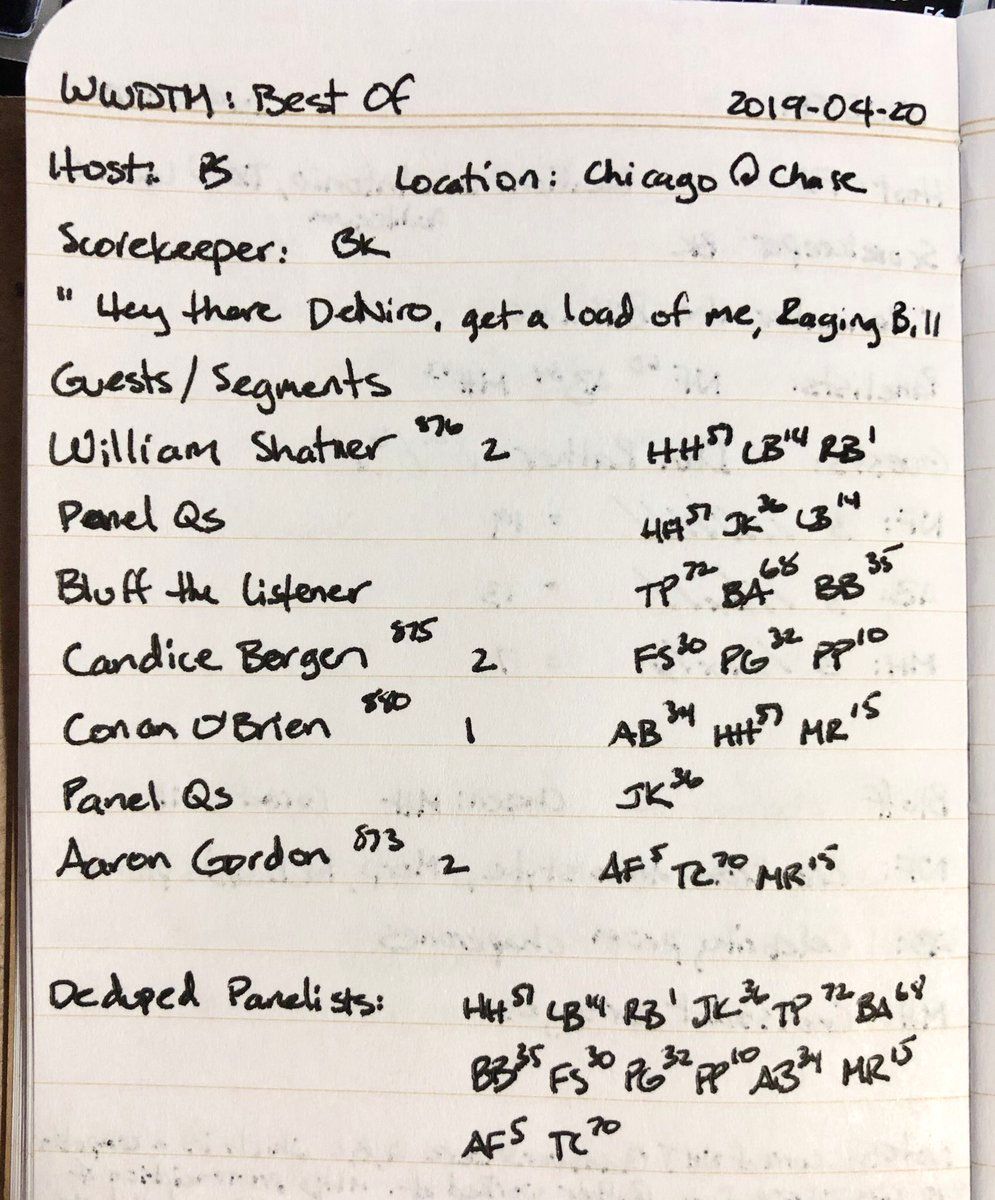 WWDTM: Best Of 2019-04-20
Host: PS Location: Chicago @ Chase
Scorekeeper: BK
" Hey there DeNiro, get a load of me, Raging Bill
Guests/Segments
William Shatner 876 2 HH57 LB14 RB1
Panel Qs HH57 JK36 LB14
Bluff the Listener TP72 BA68 BB35
Candice Bergen 875 2 FS30 PG32 PP10
Conan O'Brien 880 1 AB34 HH57 MR15
Panel Qs JK36
Aaron Gordon 873 2 AF5 TC70 MR15
Deduped Panelists: HH57 LB14 RB1 JK36 TP72 BA68
BB35 FS30 PG32 PP10 AB34 MR15
AF5 TC70